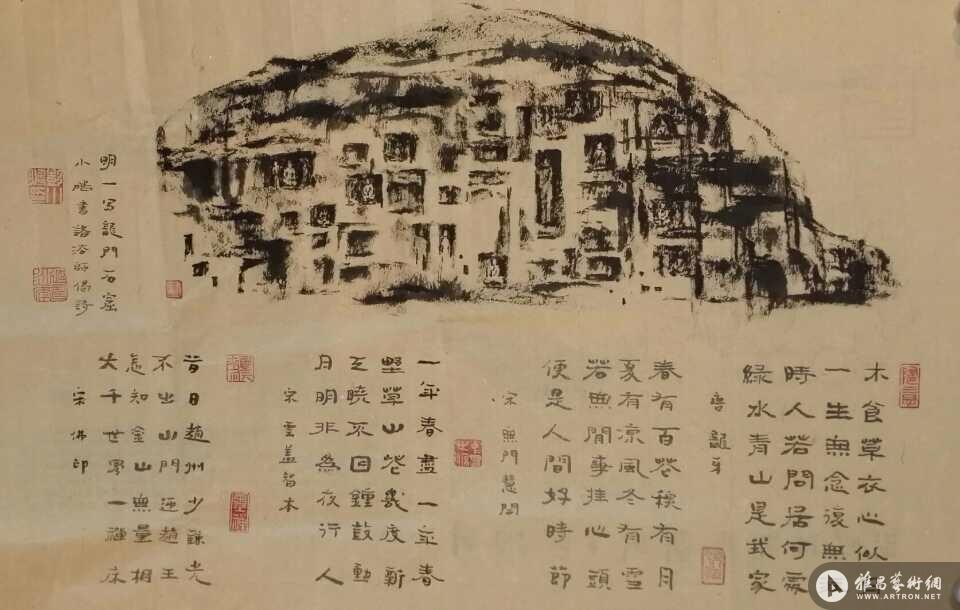 木食草衣心似
一生無念復無
時人若問居何處
綠水青山是我家
唐 龍牙
春有百花穐有月
夏有凉風冬有雪
若無閒事挂心頭
便是人間好時節
宋 無門慧開
一年春盡一年春
野草山花幾度新
天曉不因鐘鼓動
月明非為夜行人
宋 雲盖智本
昔日趙州少謙光
不出山門迎趙王
怎知金山無量相
大千世界一禪床
宋 佛印
明一写龍門石窟
小書諸法師偈詩
雅昌藝術網
WWW.ARTRON.NET